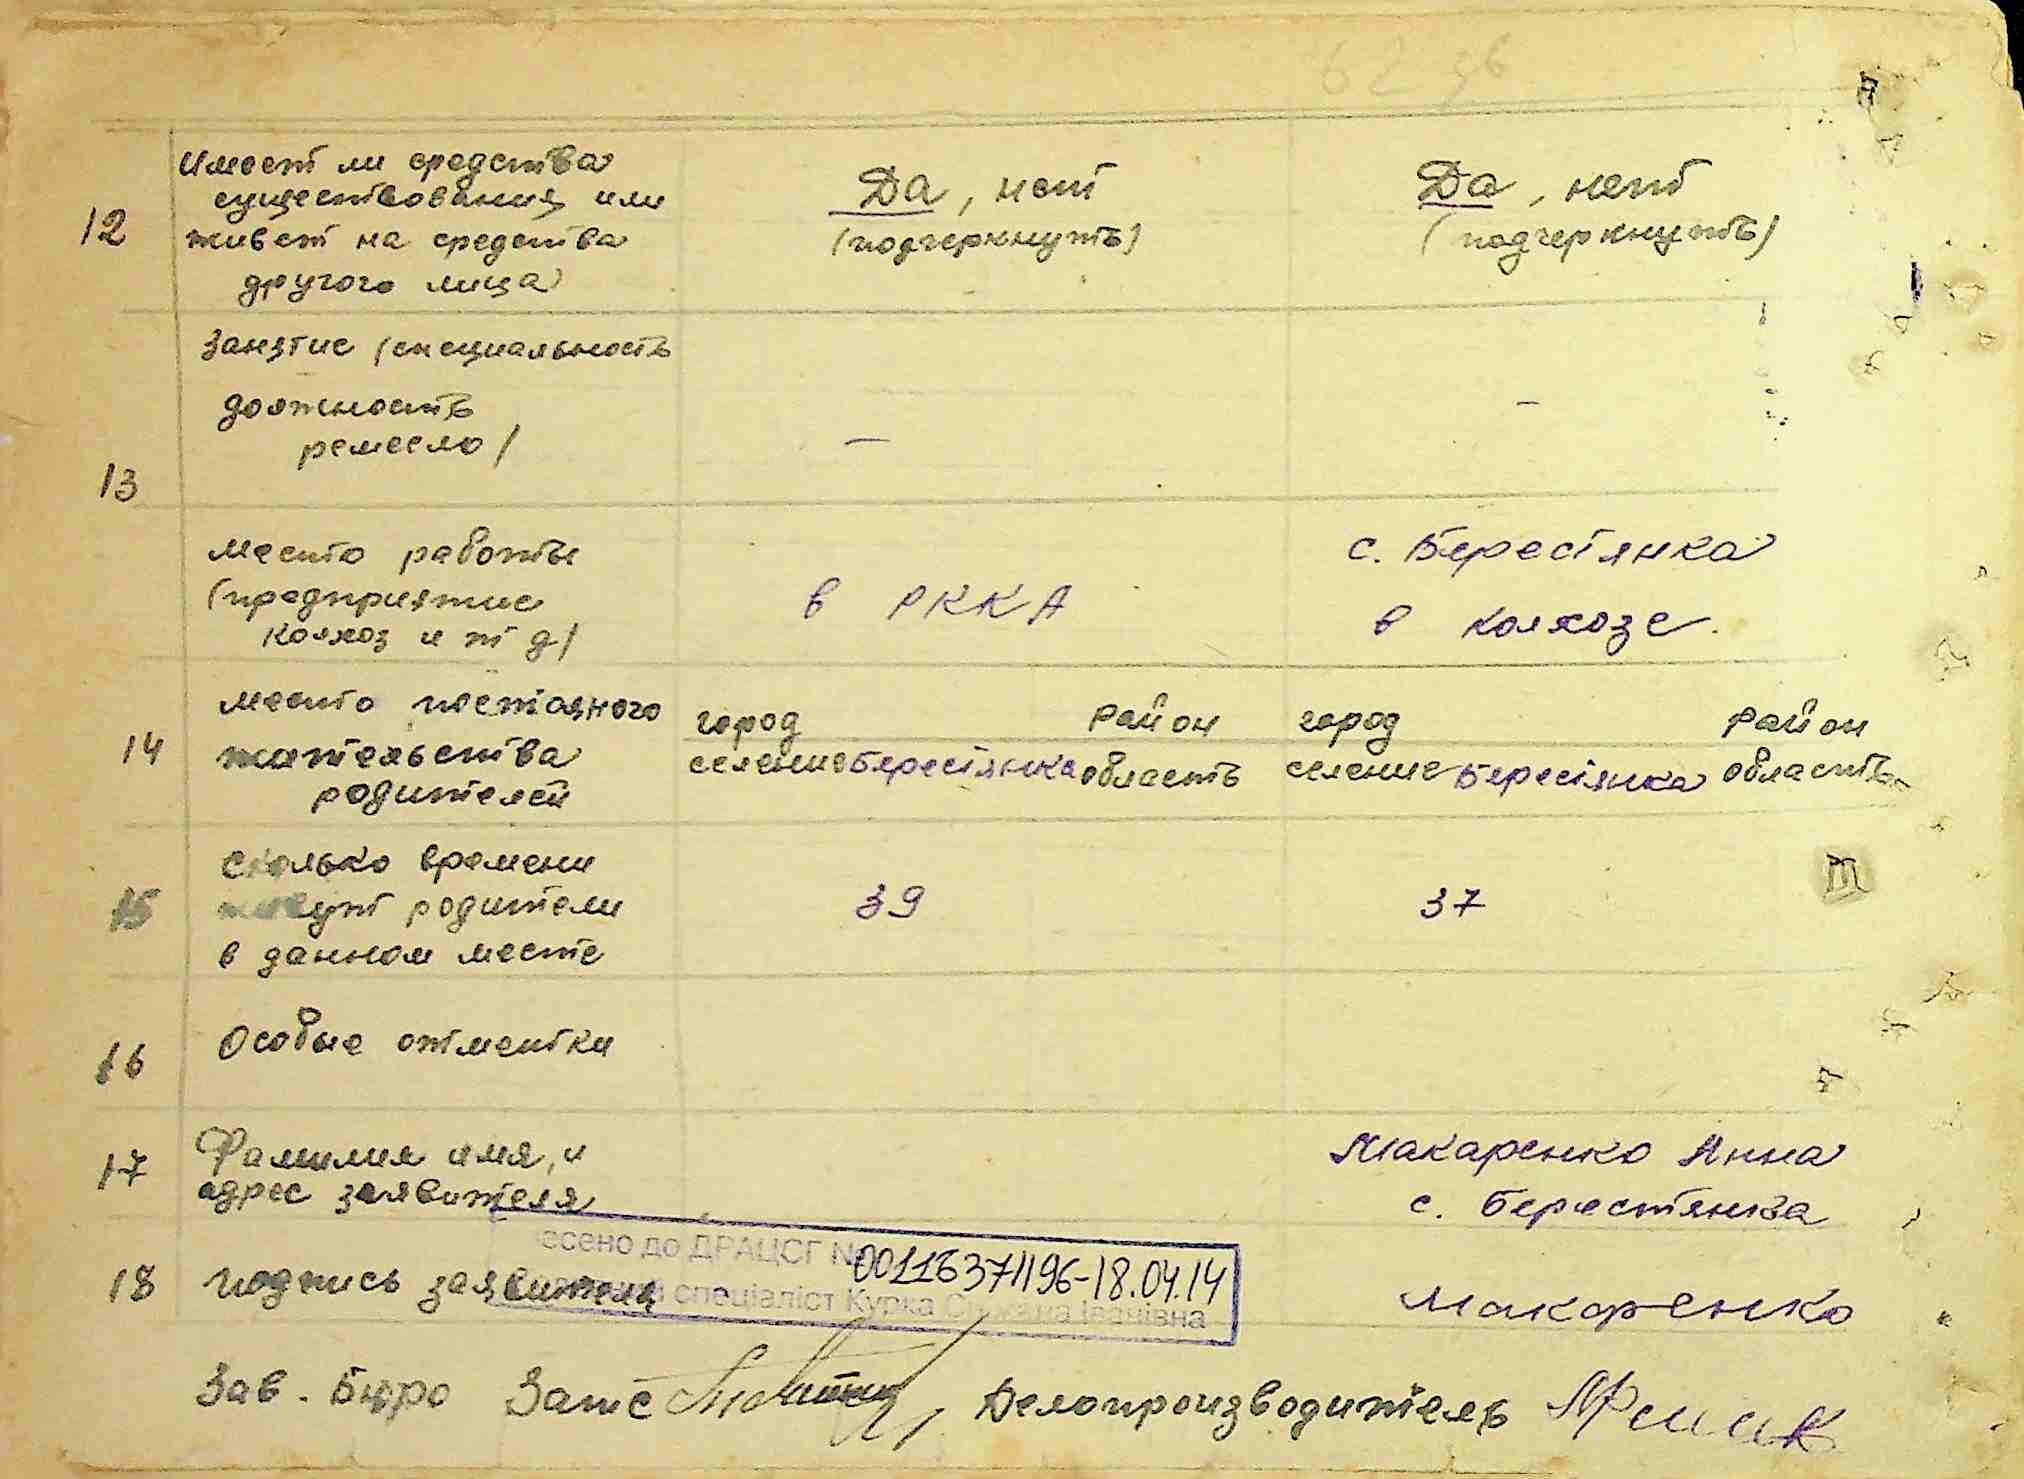 12 Имеет ли средства
существования, или
живет на средства
другого лица
Да, нет
(подчеркнуть)
Да, нет
(подчеркнуть)
13 Занятие (специальность
должность
ремесло)
–
–
место работы
(предприятие
колхоз и т д)
в РККА
с. Берестянка
в колхозе.
14 место постоянного
жительства
родителей
город район
селение Берестянка область
город район
селение Берестянка область
15 Сколько времени
живут родители
в данном месте
39
37
16 Особые отметки
17 Фамилия имя, и
адрес заявителя
Макаренко Анна
с. Берестянка
18 подпись заявителя
Макаренко
есено до ДРАЦСГ № 00116371196-18.04.14
спеціаліст Курка Іванівна
Зав. Бюро Загс Делопроизводитель